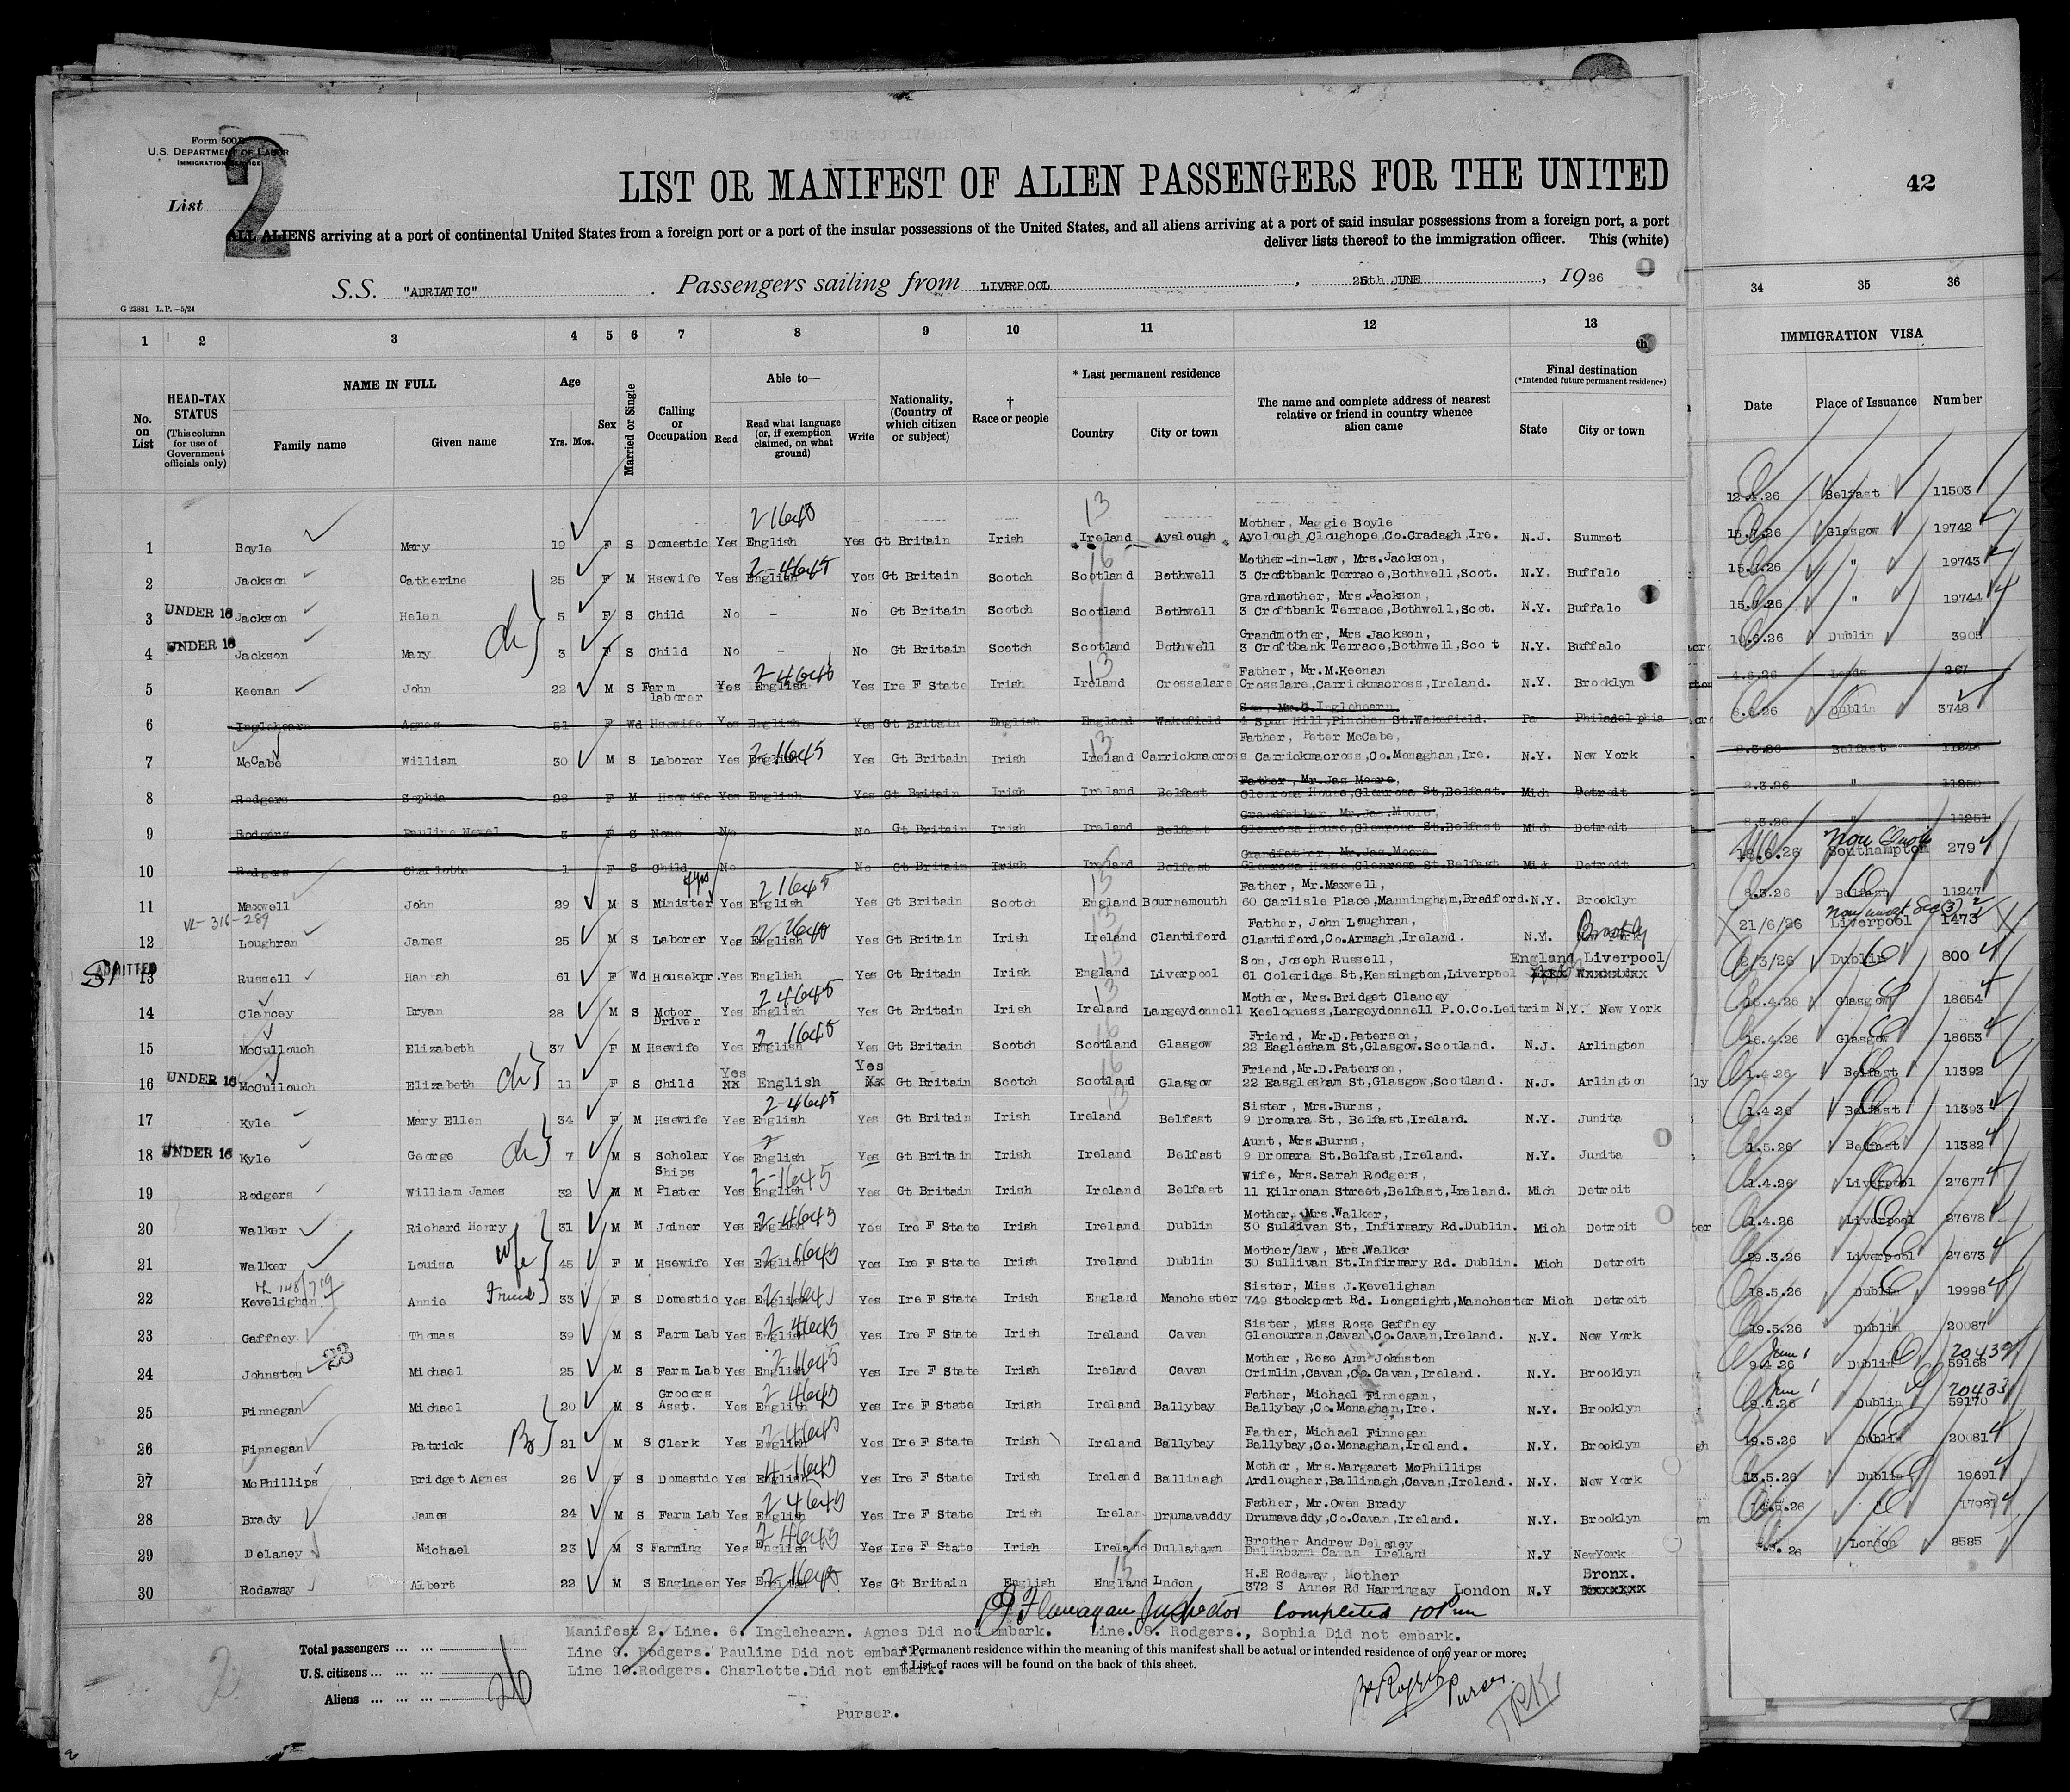 Form 500
U.S. DEPARTMENT OF LABOR
IMMIGRATION SERVICE
List 2
LIST OR MANIFEST OF ALIEN PASSENGERS FOR THE UNITED
ALL ALIENS arriving at a port of continental United States from a foreign port or a port of the insular possessions of the United States, and all aliens arriving at a port of said insular possessions from a foreign port, a port
deliver lists thereof to the immigration officer. This (white)
S.S. "ADRIATIC" Passengers sailing from LIVERPOOL, JUNE, 1926
G 23881 L.P.—5/24
42
1 2 3 4 5 6 7 8 9 10 11 12 13 34 35 36
No. on List
HEAD-TAX STATUS (This column for use of Government officials only)
NAME IN FULL
Family name Given name
Age
Yrs. Mos.
Sex
Married or Single
Calling or Occupation
Able to—
Read Read what language (or, if exemption claimed, on what ground) Write
Nationality, (Country of which citizen or subject)
† Race or people
* Last permanent residence
Country City or town
The name and complete address of nearest relative or friend in country whence alien came
Final destination
(*Intended future permanent residence)
State City or town
IMMIGRATION VISA
Date Place of Issuance Number
1 Boyle Mary 19 F S Domestic Yes English Yes Gt Britain Irish Ireland Ayslough Mother, Maggie Boyle Ayclough,Cloughope,Co.Cradagh,Ire. N.J. Summet
2 Jackson Catherine 25 F M Hsewife Yes English Yes Gt Britain Scotch Scotland Bothwell Mother-in-law, Mrs.Jackson, 3 Croftbank Terrace,Bothwell,Scot. N.Y. Buffalo
3 UNDER 16 Jackson Helen 5 F S Child No - No Gt Britain Scotch Scotland Bothwell Grandmother, Mrs.Jackson, 3 Croftbank Terrace,Bothwell,Scot. N.Y. Buffalo
4 UNDER 16 Jackson Mary 3 F S Child No - No Gt Britain Scotch Scotland Bothwell Grandmother, Mrs Jackson, 3 Croftbank Terrace,Bothwell,Scot N.Y. Buffalo
5 Keenan John 22 M S Farm laborer Yes English Yes Ire F State Irish Ireland Crosslare Father, Mr.M.Keenan Crosslare,Carrickmacross,Ireland. N.Y. Brooklyn
6 Inglehearn Agnes 51 F Wd Hsewife Yes English Yes Gt Britain English England Wakefield Son, Mr.G.Inglehearn 4 Spun Hill,Pinchen St.Wakefield. Pa Philadelphia
7 McCabe William 30 M S Laborer Yes English Yes Gt Britain Irish Ireland Carrickmacross Father, Peter McCabe, Carrickmacross,Co.Monaghan,Ire. N.Y. New York
8 Rodgers Sophia 28 F M Hsewife Yes English Yes Gt Britain Irish Ireland Belfast Father, Mr.Jas Moore, Glenrosa House,Glenrosa St,Belfast. Mich Detroit
9 Rodgers Pauline Newel 3 F S None No No Gt Britain Irish Ireland Belfast Grandfather, Mr.Jas.Moore, Glenrosa House,Glenrosa St.Belfast Mich Detroit
10 Rodgers Charlotte 1 F S Child No No Gt Britain Irish Ireland Belfast Grandfather, Mr.Jas.Moore Glenrosa House,Glenrosa St.Belfast Mich Detroit
11 Maxwell John 29 M S Minister Yes English Yes Gt Britain Scotch England Bournemouth Father, Mr.Maxwell, 60 Carlisle Place,Manningham,Bradford. N.Y. Brooklyn
12 Loughran James 25 M S Laborer Yes English Yes Gt Britain Irish Ireland Clantiford Father, John Loughran, Clantiford,Co.Armagh,Ireland. N.Y.
13 ADMITTED Russell Hannah 61 F Wd Housekpr. Yes English Yes Gt Britain Irish England Liverpool Son, Joseph Russell, 61 Coleridge St,Kensington,Liverpool England Liverpool
14 Clancey Bryan 28 M S Motor Driver Yes English Yes Gt Britain Irish Ireland Largeydonnell Mother, Mrs.Bridget Clancey Keeloguess,Largeydonnell P.O.Co.Leitrim N.Y. New York
15 McCullouch Elizabeth 37 F M Hsewife Yes English Yes Gt Britain Scotch Scotland Glasgow Friend, Mr.D.Paterson, 22 Eaglesham St,Glasgow.Scotland. N.J. Arlington
16 UNDER 16 McCullouch Elizabeth 11 F S Child Yes English Yes Gt Britain Scotch Scotland Glasgow Friend,Mr.D.Paterson, 22 Easglesham St,Glasgow,Scotland. N.J. Arlington
17 Kyle Mary Ellen 34 F M Hsewife Yes English Yes Gt Britain Irish Ireland Belfast Sister, Mrs.Burns, 9 Dromara St, Belfast,Ireland. N.Y. Junita
18 UNDER 16 Kyle George 7 M S Scholar Yes English Yes Gt Britain Irish Ireland Belfast Aunt, Mrs.Burns, 9 Dromara St.Belfast,Ireland. N.Y. Junita
19 Rodgers William James 32 M M Ships Plater Yes English Yes Gt Britain Irish Ireland Belfast Wife, Mrs.Sarah Rodgers, 11 Kilronan Street,Belfast,Ireland. Mich Detroit
20 Walker Richard Henry 31 M M Joiner Yes English Yes Ire F State Irish Ireland Dublin Mother, Mrs.Walker, 30 Sullivan St, Infirmary Rd.Dublin. Mich Detroit
21 Walker Louisa 45 F M Hsewife Yes English Yes Ire F State Irish Ireland Dublin Mother/law, Mrs.Walker 30 Sullivan St.Infirmary Rd. Dublin. Mich Detroit
22 Kevelighan Annie Friend 33 F S Domestic Yes English Yes Ire F State Irish England Manchester Sister, Miss J.Kevelighan 749 Stockport Rd. Longsight,Manchester Mich Detroit
23 Gaffney Thomas 39 M S Farm Lab Yes English Yes Ire F State Irish Ireland Cavan Sister, Miss Rose Gaffney Glencurran,Cavan Co.Cavan,Ireland. N.Y. New York
24 Johnston Michael 25 M S Farm Lab Yes English Yes Ire F State Irish Ireland Cavan Mother, Rose Ann Johnston Crimlin,Cavan,Co.Cavan,Ireland. N.Y. Brooklyn
25 Finnegan Michael 20 M S Grocers Asst. Yes English Yes Ire F State Irish Ireland Ballybay Father, Michael Finnegan, Ballybay,Co.Monaghan,Ire. N.Y. Brooklyn
26 Finnegan Patrick 21 M S Clerk Yes English Yes Ire F State Irish Ireland Ballybay Father, Michael Finnegan Ballybay,Co.Monaghan,Ireland. N.Y. Brooklyn
27 McPhillips Bridget Agnes 26 F S Domestic Yes English Yes Ire F State Irish Ireland Ballinagh Mother, Mrs.Margaret McPhillips Ardlougher,Ballinagh,Cavan,Ireland. N.Y. New York
28 Brady James 24 M S Farm Lab Yes English Yes Ire F State Irish Irelan Drumavaddy Father, Mr.Owen Brady Drumavaddy,Co.Cavan,Ireland. N.Y. Brooklyn
29 Delaney Michael 23 M S Farming Yes English Yes Ire F State Irish Ireland Dullatawn Brother Andrew Delaney Dullabawn Cavan Ireland N.Y NewYork
30 Rodaway Albert 22 M S Engineer Yes English Yes Gt Britain English England Lndon H.E Rodaway, Mother 372 S Annes Rd Harringay London N.Y Bronx.
12.4.26 Belfast 11503
15.7.26 Glasgow 19742
15.7.26 " 19743
15.7.26 " 19744
10.6.26 Dublin 3905
4.6.26 Leeds 267
8.6.26 Dublin 3748
8.3.26 Belfast
8.3.26 " 11250
8.3.26 " 11251
18.6.26 Non Quota Southampton 279
8.3.26 Belfast 11247
21/6/26 Liverpool 1473
2/3/26 Dublin 800
16.4.26 Glasgow 18654
16.4.26 Glasgow 18653
1.4.26 Belfast 11392
1.4.26 Belfast 11393
1.5.26 Belfast 11382
1.4.26 Liverpool 27677
1.4.26 Liverpool 27678
29.3.26 Liverpool 27673
18.5.26 Dublin 19998
19.5.26 Dublin 20087
June 1 9.4.26 Dublin 59168
June 1 9.4.26 Dublin 20433 59170
19.5.26 Dublin 20081
13.5.26 Dublin 19691
" 17981
London 8585
Flanagan Inspector Completed
Manifest 2. Line. 6. Inglehearn. Agnes Did not embark. Line. 8. Rodgers., Sophia Did not embark.
Line 9. Rodgers. Pauline Did not embark.
Line 10.Rodgers. Charlotte.Did not embark.
* Permanent residence within the meaning of this manifest shall be actual or intended residence of one year or more.
† List of races will be found on the back of this sheet.
Total passengers
U.S. citizens
Aliens
26
Purser.
Purser.